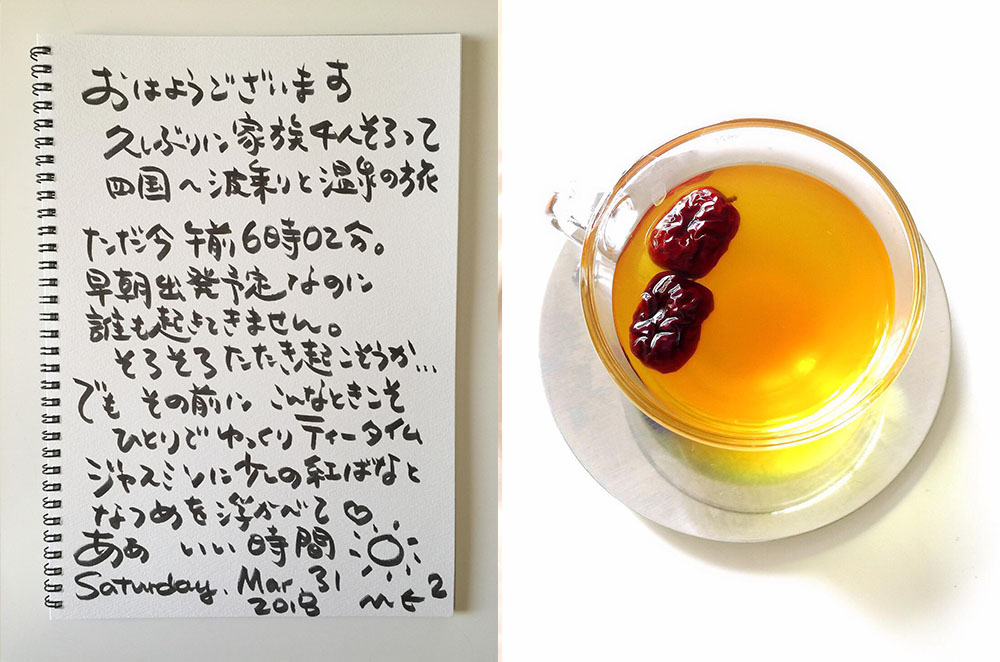 おはようございます
久しぶりに家族4人そろって
四国へ波乗りと温泉の旅
ただ今 午前6時02分。
早朝出発予定なのに
誰も起きてきません。
そろそろたたき起こそうか…
でも その前に こんなときこそ
ひとりで ゆっくり ティータイム
ジャスミンに少しの紅ばなと
なつめを浮かべて♡
あぁ いい時間
Saturday. Mar. 31
2018